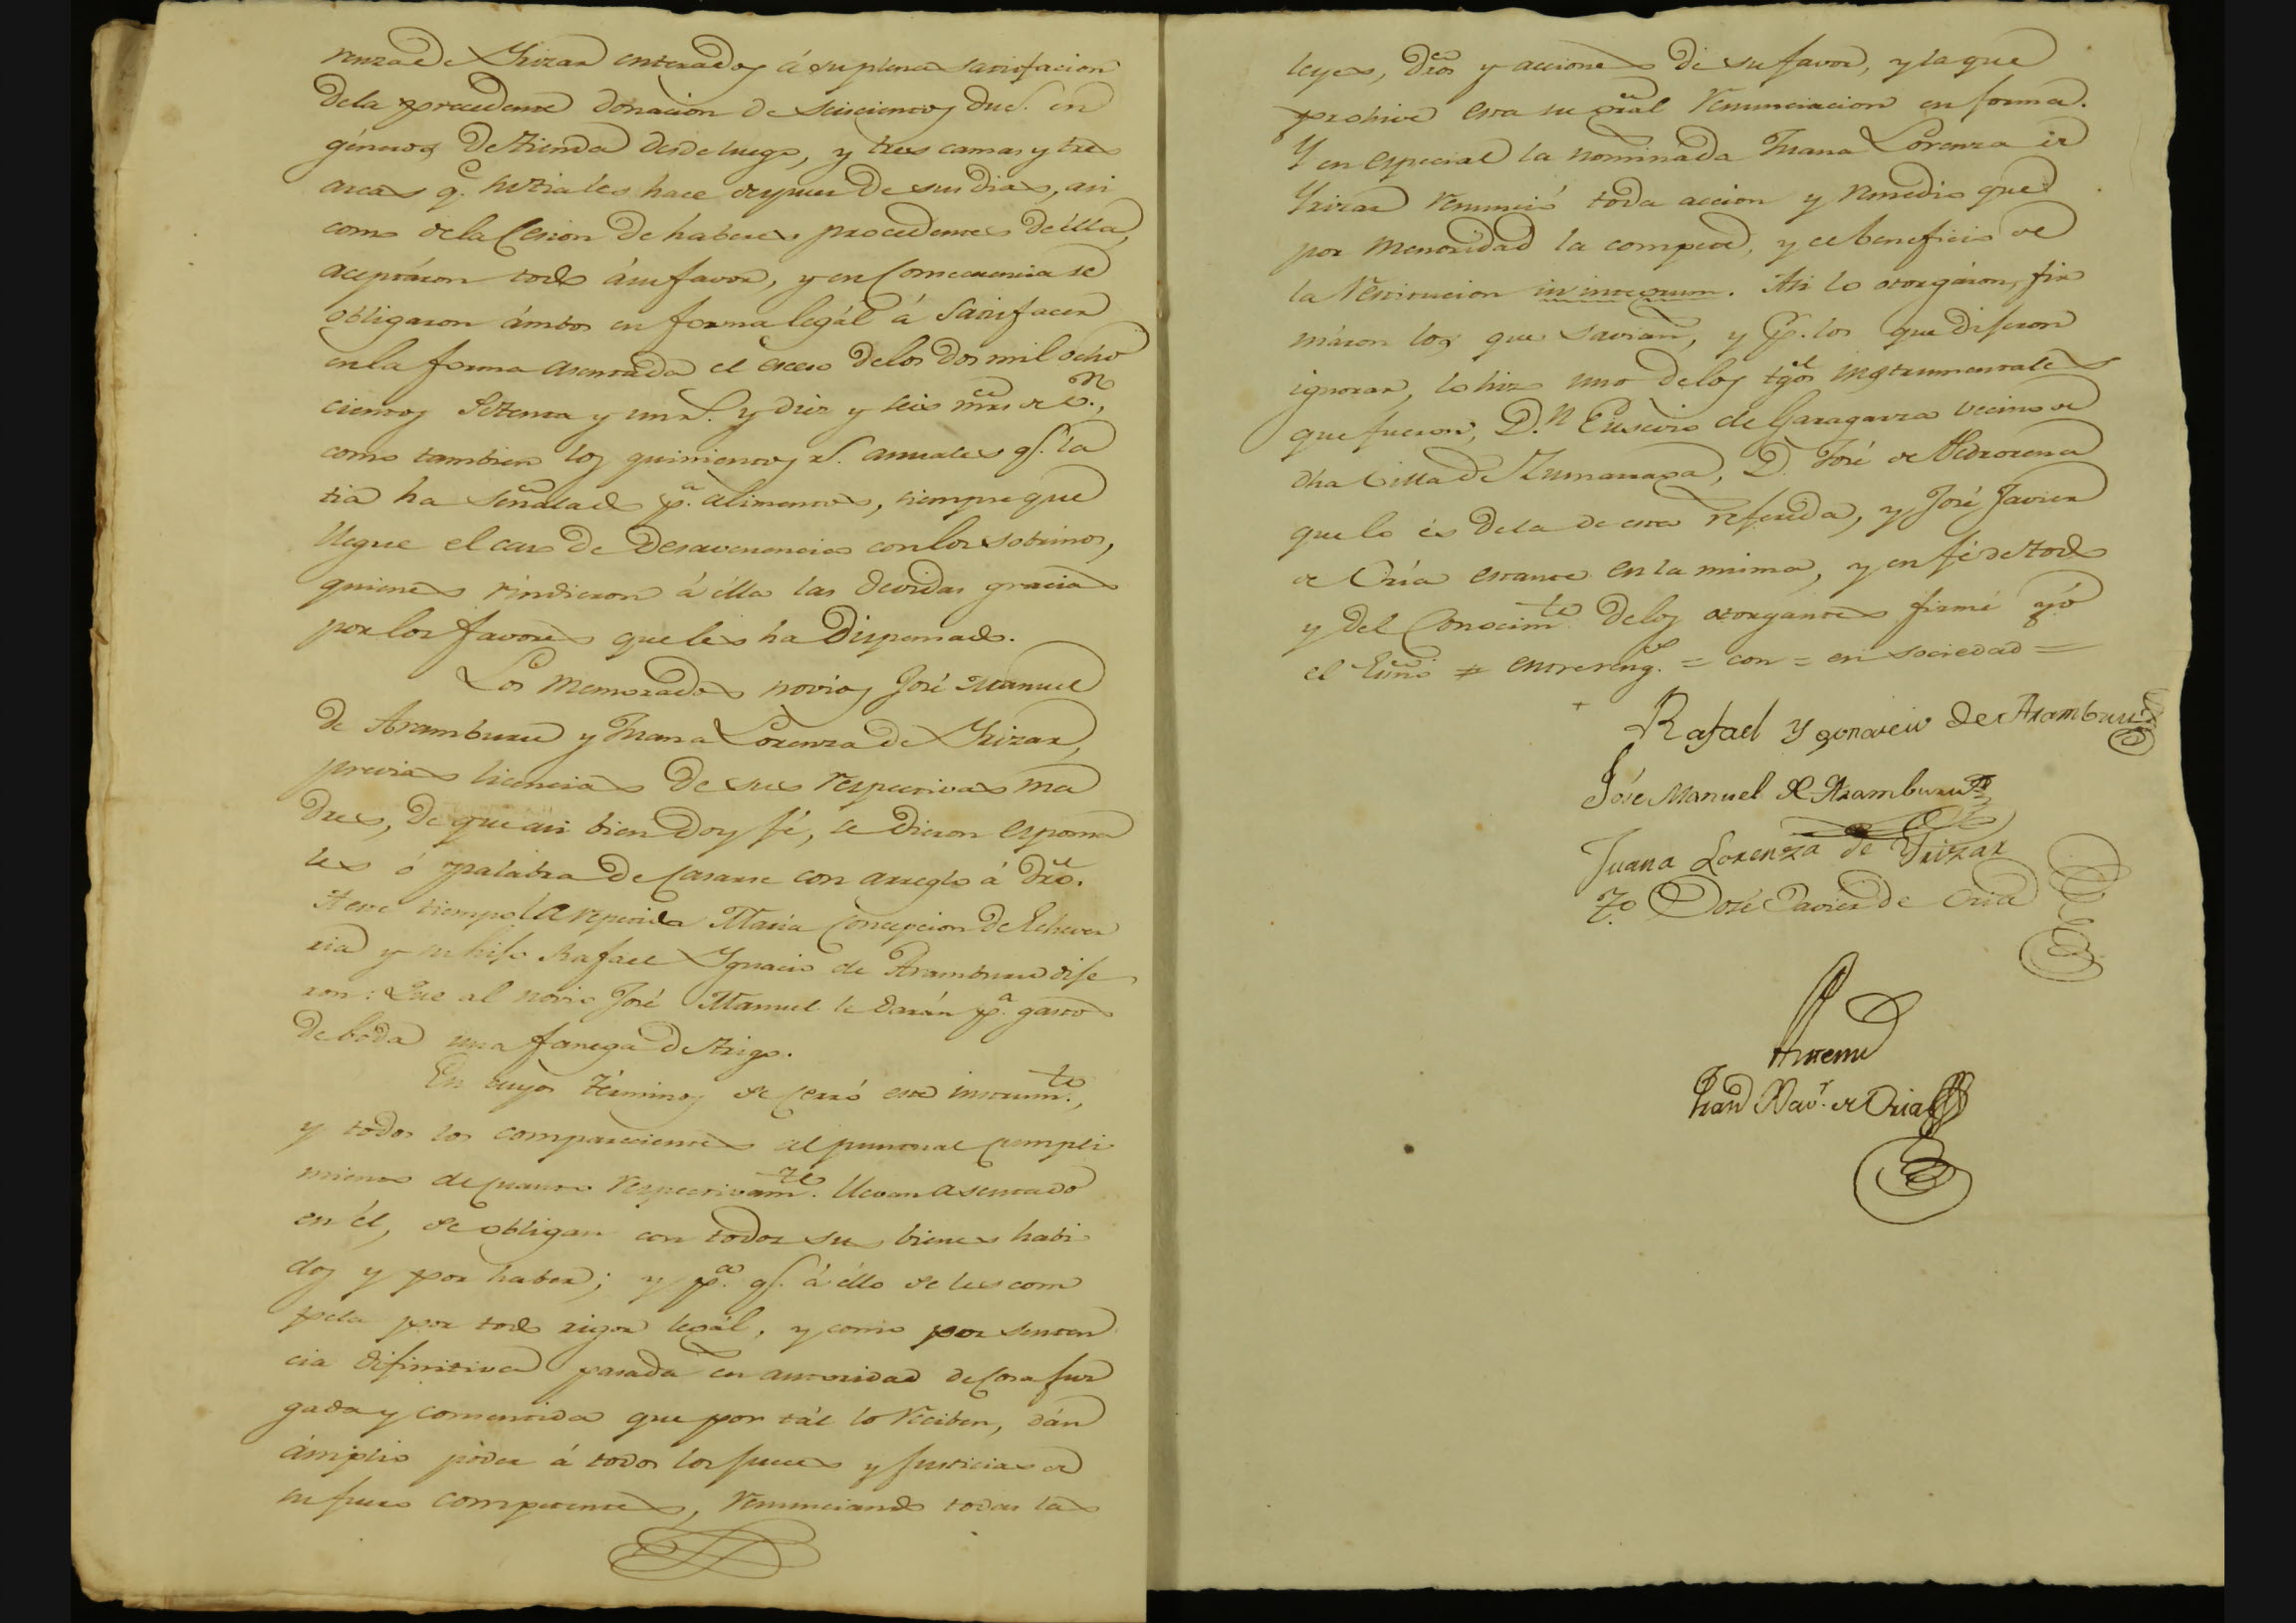 renza de Yrizar enterados á su plena satisfacion
de la precedente donacion de seiscientos duc.s en
géneros de tienda desde luego, y tres camas y tres
arcas q.e su tia les hace despues de sus dias, asi
como de la Cesion de haberes procedentes de élla,
aceptáron todo á su favor, y en Consecuencia se
obligaron ámbos en forma legál á Satisfacer
en la forma asentada el exceso de los dos mil ocho
cientos Setenta y un r.s y diez y seis mrs de v.n,
como tambien los quinientos r.s anuales q.e la
tia ha señalado p.a alimentos, siempre que
llegue el caso de Desavenencias con los sobrinos,
quienes rindieron á élla las devidas gracias
por los favores que les ha Dispensado.
Los memorados novios José Manuel
de Aramburu y Juana Lorenza de Yrizar,
previas licencias de sus respectivas ma
dres, de que asi bien doy fé, se dieron esponsa
les ó palabra de Casarse con arreglo á dro.
A este tiempo la repetida María Concepcion de Echever
ria y su hijo Rafael Ygnacio de Aramburu dije
ron: Que al novio José Manuel le darán p.a gastos
de boda una fanega de trigo.
En cuyos términos se cerró este instrum.to,
y todos los comparecientes al puntual cumpli
miento de cuanto respectivam.te llevan asentado
en él, se obligan con todos sus bienes habi
dos y por haber; y p.a q.e á éllo se les com
pela por todo rigor legál, y como por senten
cia difinitiva pasada en autoridad de Cosa juz
gada y consentida que por tál lo reciben, dán
ámplio poder á todos los jueces y justicias de
su fuero competentes, renunciando todas las
leyes, dros y acciones de su favor, y la que
prohive esta su gral renunciacion en forma.
Y en especial la nominada Juana Lorenza de
Yrizar renunció toda accion y remedio que
por menoridad la compete, y el beneficio de
la restitucion in integrum. Asi lo otorgáron, fir
máron los que savian, y p.r los que dijeron
ignorar, lo hizo uno de los tgos instrumentales
que fueron, D.n Eusevio de Garagarza vecino de
dha Villa de Zumarraga, D. José de Aldrorena
que lo és de la de esta referida, y José Javier
de Oria estante en la misma, y en fé de todo
y del Conocim.to de los otorgantes firmé yó
el Esnõ = entrereng.s = con = en sociedad =
Rafael Ygonacio de Aramburu
José Manuel de Aramburu
Juana Lorenza de Yrizar
T.o José Javier de Oria
Antemi
Juan Xav.r de Oria